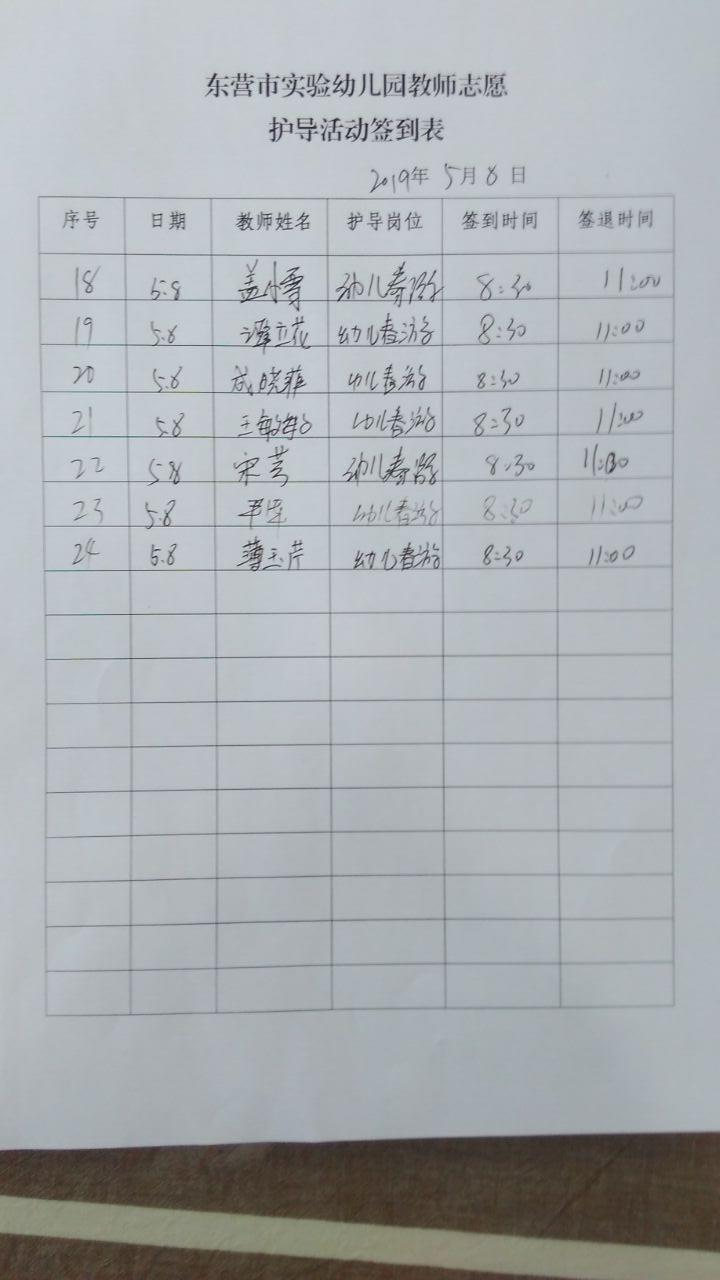 东营市实验幼儿园教师志愿
护导活动签到表
2019年 5月8日
序号 日期 教师姓名 护导岗位 签到时间 签退时间
18 5.8 盖小雪 幼儿春游 8:30 11:00
19 5.8 谭立花 幼儿春游 8:30 11:00
20 5.8 成晓菲 幼儿春游 8:30 11:00
21 5.8 王敏 幼儿春游 8:30 11:00
22 5.8 宋芸 幼儿春游 8:30
23 5.8 幼儿春游 8:30 11:00
24 5.8 薄玉芹 幼儿春游 8:30 11:00